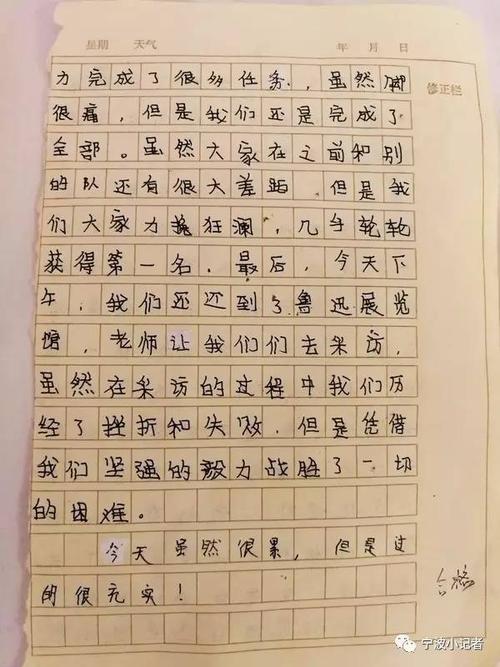 星期 天气 年 月 日
修正栏
力完成了很多任务,虽然脚
很痛,但是我们还是完成了
全部。虽然大家在之前和别
的队还有很大差距,但是我
们大家力挽狂澜,几乎轮轮
获得第一名,最后,今天下
午,我们还还到了鲁迅展览
馆,老师让我们们去采访,
虽然在采访的过程中我们历
经了挫折和失败,但是凭借
我们坚强的毅力战胜了一切
的困难。
今天虽然很累,但是过
的很充实!
合格
宁波小记者